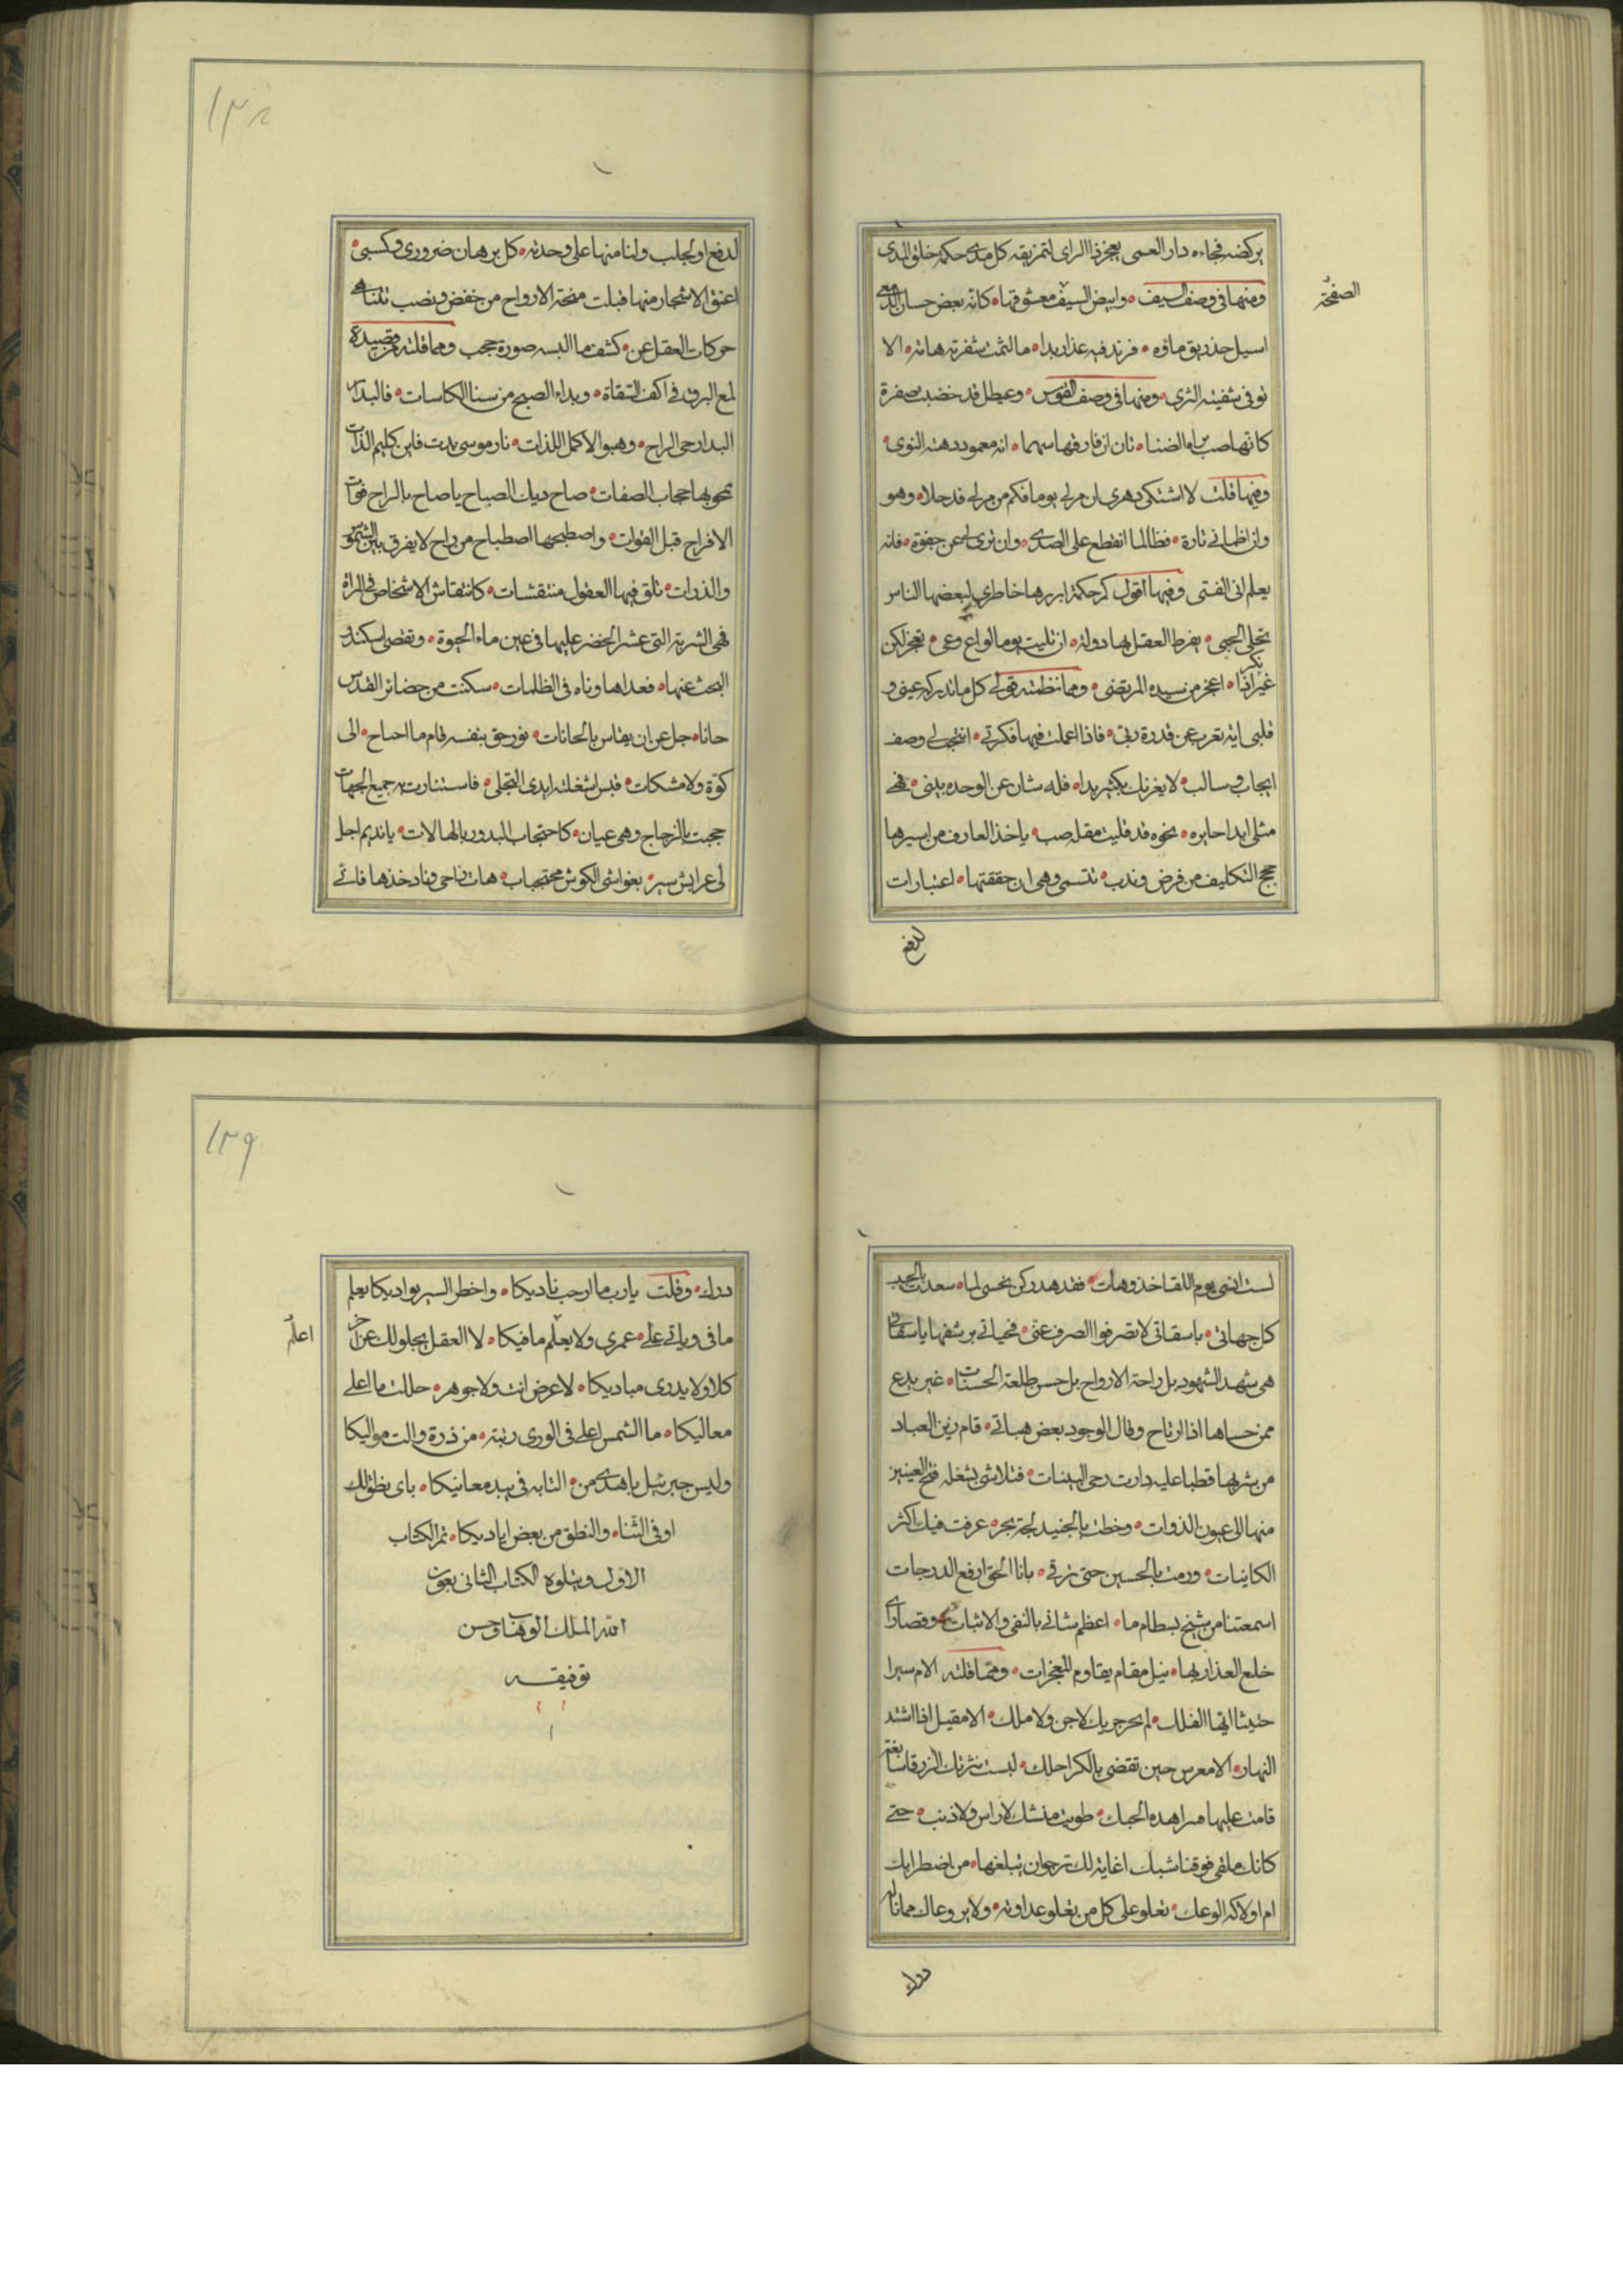 ١٣٨
يركضه فجاءه دار العمى يعجز ذا الراى لتمزيقه كل مدى حكمة خلق المدى
الصفحة
ومنها فى وصف السيف وابيض السيف معشوقها كانه بعض حسان
اسيل خد ريق ماؤه فرند فيه عذار بدا ما التمت شفرته هامة الا
توفى شفيته الثرى ومنها فى وصف القوس وعيطل قد خضبت صفرة
كانها صب براه الضنا تان ان فارقها سهما انه معمود دهته النوى
ومنها قلت لا اشتكى دهرى ان مر لى يوما فكم من مر لى قد حلا وهو
وان اظمانى تارة فظالما انقطع على الصدى وان نرى لى عن جفوة فانه
يعلم انى الفتى وفيها اقول كم حكمة ابرزها خاطرى لبعضها الناس
تحلى الحجى بفرط العقل لها دولة ان تليت يوما لواع وعى تعجز لكن
غير اذا اعجز من سيده المرتضى ومما نظمته قولى كل ما تدركه عينى و
بكر
قلبى اية تعرب عن قدرة ربى فاذا اعملت فيها فكرتى انتجت لى وصف
ايجاب وسالب لا يغرنك بكثير بدا فله شان عن الوحدة ينبى فهى
مثلى ابدا حايره نحوه قد قلبت مقلة صب ياخذ العارف من اسيرها
حجج التكليف من فرض وندب تتسمى وهى ان حققتها اعتبارات
لدفع
لدفع او لجلب ولنا منها على وحدته كل برهان ضرورى وكسبى
اعنق الاشجار منها قبلت منحة الارواح من خفض ونصب تتناهى
حركات العقل عن كشف ما البسه صورة حجب ومما قلته من قصيدة
لمع البرق فى اكف السقاة وبداء الصبح من سنا الكاسات فالبدار
البدار حى الراح وهبوا لاكمل اللذات نار موسى بدت فاين كليم الذات
يمحو بها حجاب الصفات صاح ديك الصباح يا صاح بالراح فوات
الافراح قبل الفوات واصطبحها اصطباح من راح لا يفرق بين الشموس
والذوات تلق فيها العقول منتقشات كانتقاش الاشخاص فى المرآة
فهى الشربة التى عثر الخضر عليها فى عين ماء الحيوة وتقصى اسكندر
البحث عنها فعداها وتاه فى الظلمات سكنت من حضائر القدس
حانا جل عن ان يقاس بالحانات نور حق بنفسه قام ما احتاج الى
كوة ولا مشكات قبس اشعلته ايدى التجلى فاستنارت به جميع الجهات
حجبت بالزجاج وهى عيان كاحتجاب البدور بالهالات يا نديم اجل
لى عرايش سر بغواشى الكوش محتجبات هات راحى وناد خذها فانى
١٣٩
لست انسى يوم اللقا خذ وهات فقد هد ركن نحسى لما سعدت بالحبيب
كل جهاتى يا سقاتى لا تصرفوا الصرف عنى فحياتى برشفها يا سقاتى
هى شهد الشهود بل راحة الارواح بل حسن طلعة الحسنات غير بدع
ممن حساها اذا ارتاح وقال الوجود بعض هباتى قام زين العباد
من شربها قطبا عليه دارت رحى البينات فتلاشى بشعلة فتح العينين
منها الى عيون الذوات وخطت بالجنيد لجة بحر عرفت فيك اكثر
الكاينات ورمت بالحسين حتى ترقى بانا الحق ارفع الدرجات
اسمعتنا من شيخ بسطام ما اعظم شانى بالنفى والاثبات وقصارى
خلع العذار بها نيل مقام يقاوم المعجزات ومما قلته الام سيرا
حثيثا ايها الفلك لم يحر جريك لا جن ولا ملك الا مقيل اذا اشتد
النهار الا معرس حين تقضى بالكرا حلك لبست نثرتك الزرقا سابغة
قامت عليها مراهده الحبك طويت منشك لا راس ولا ذنب حتى
كانك ملقى فوقنا شبك اغاية لك ترجو ان تبلغها من اضطرابك
ام اولاكه الوعك تعلو على كل من يعلو عداوته ولا يروعاك مما ناله
درك
درك وقلت يا رب ما ارحب ناديكا واخطر السير بواديكا يعلم
ما فى وياتى على عمرى ولا يعلم ما فيكا لا العقل يجلو لك عن
اعلم
كلا ولا يدرى مباديكا لا عرض انت ولا جوهر حللت ما اعلى
معاليكا ما الشمس اعلى فى الورى رتبة من ذرة والت مواليكا
وليس جبرئيل باهدى من التايه فى بيد معانيكا باى نطق لك
اوفى الثناء والنطق من بعض اياديكا تم الكتاب
الاول ويتلوه الكتاب الثانى بعون
الله الملك الوهاب وحسن
توفيقه